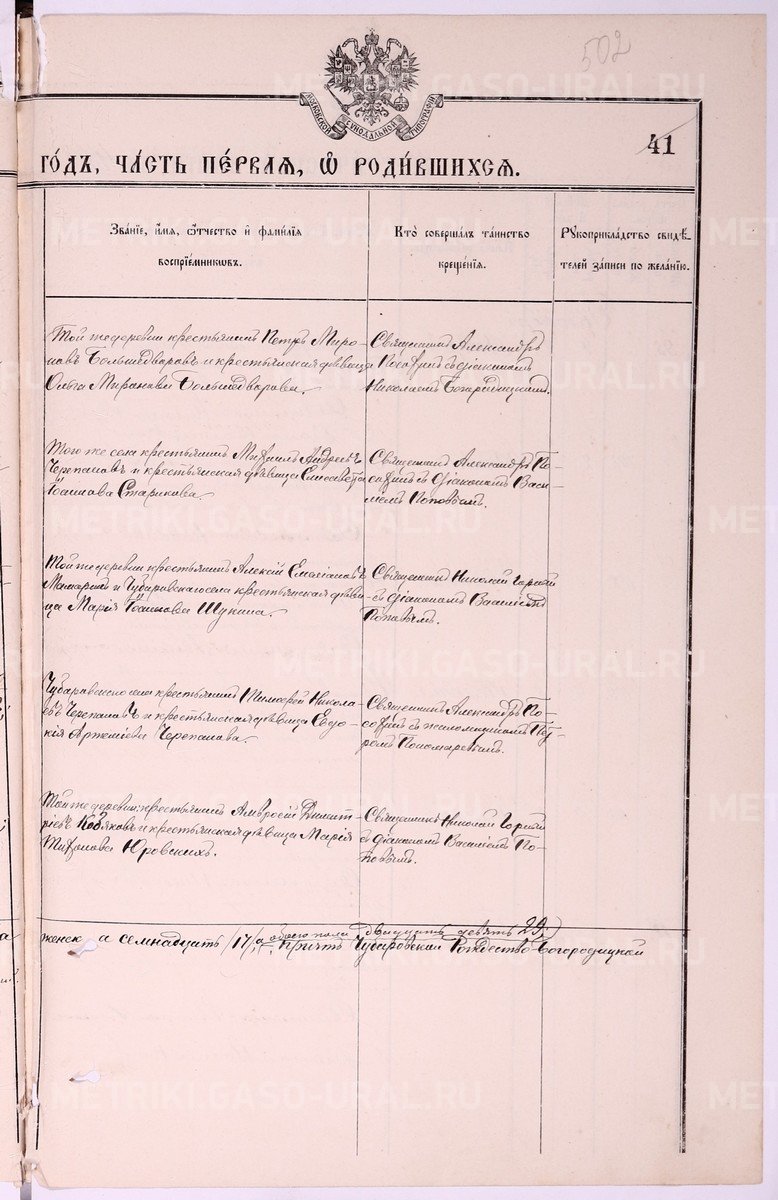 502
МОСКОВСКОЙ СѴНОДАЛЬНОЙ ТИПОГРАФІИ
41
ГО́ДЪ, ЧА́СТЬ ПЕ́РВАЯ, Ѽ РОДИ́ВШИХСЯ.
Зва́ніе, и́мя, ѻ҆́тчество и҆ фами́лія
воспріе́мниковъ.
Кто̀ соверша́лъ та́инство
креще́нія.
Рꙋкоприкла́дство свидѣ́-
телей за́писи по жела́нію.
Той же деревни крестьянинъ Петръ Миро-
новъ Большедворовъ и крестьянская дѣвица
Ольга Миронова Большедворова.
Священникъ Александръ
съ діакономъ
Николаемъ Богородицкимъ.
Того же села крестьянинъ Михаилъ Андреевъ
Черепановъ и крестьянская дѣвица Елисавета
Іоаннова Старикова.
Священникъ Александръ По-
съ діакономъ Васи-
ліемъ Поповымъ.
Той же деревни крестьянинъ Алексій Емеліановъ
и Чубаровскаго села крестьянская дѣви-
ца Марія Іоаннова Щукина.
Священникъ Николай Горный
съ діакономъ Василіемъ
Поповымъ.
Чубаровскаго села крестьянинъ Тимофей Никола-
евъ Черепановъ и крестьянская дѣвица Евдо-
кія Артеміева Черепанова.
Священникъ Александръ По-
съ псаломщикомъ Пет-
ромъ Пономаревымъ.
Той же деревни крестьянинъ Амвросій Димит-
ріевъ Кобяковъ и крестьянская дѣвица Марія
Тихонова Юровскихъ.
Священникъ Николай Горный
съ діакономъ Василіемъ По-
повымъ.
женск а семнадцать /17/, а обоего пола двадцать девять 29.)
Причтъ Чубаровской Рождество-Богородицкой
METRIKI.GASO-URAL.RU